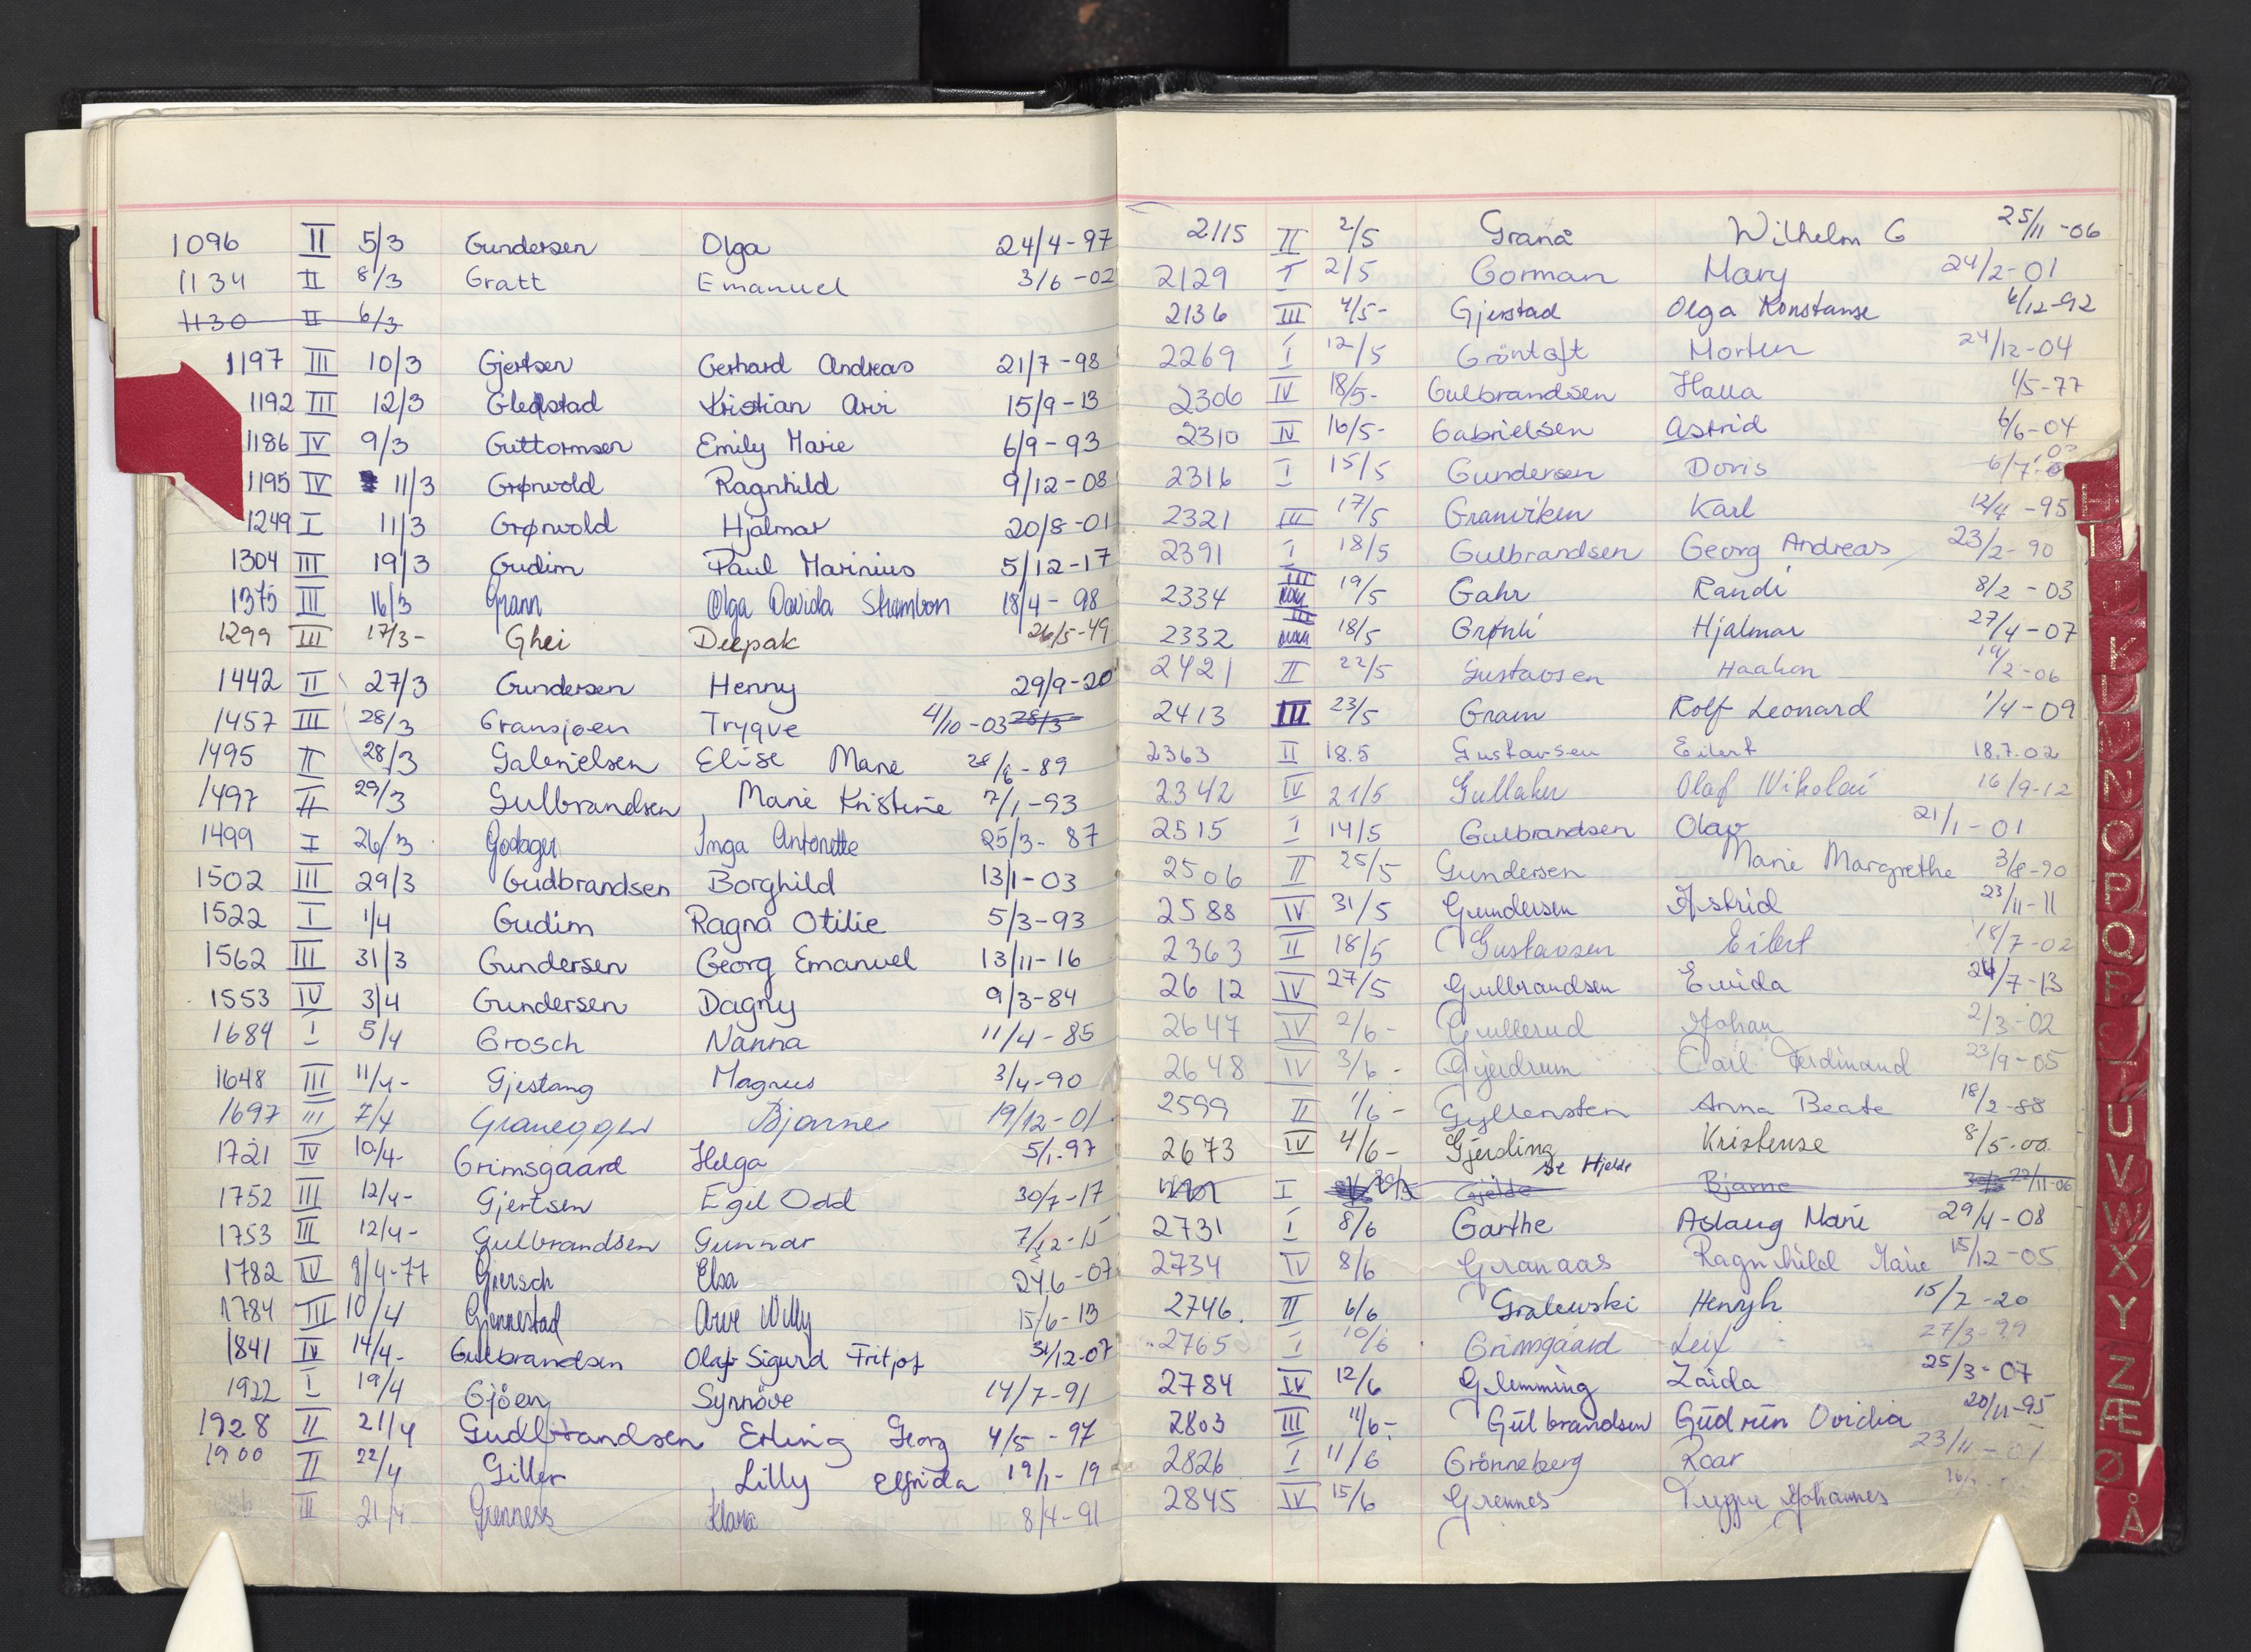 1096 II 5/3 Gundersen Olga 24/4-97
1134 II 8/3 Gratt Emanuel 3/6-02
1130 II 6/3
1197 III 10/3 Gjertsen Gerhard Andreas 21/7-98
1192 III 12/3 Gledstad Kristian Arvi 15/9-13
1186 IV 9/3 Guttormsen Emily Marie 6/9-93
1195 IV 11/3 Grønvold Ragnhild 9/12-08
1249 I 11/3 Grønvold Hjalmar 20/8-01
1304 III 19/3 Gudim Paul Marinius 5/12-17
1375 III 16/3 Grann Olga Davida Strømbom 18/4-98
1299 III 17/3- Ghei Deepak 26/5-49
1442 II 27/3 Gundersen Henny 29/9-20
1457 III 28/3 Gransjøen Trygve 4/10-03 28/3
1495 II 28/3 Gabrielsen Elise Marie 28/6-89
1497 II 29/3 Gulbrandsen Marie Kristine 7/1-93
1499 I 26/3 Godager Inga Antonette 25/3-87
1502 III 29/3 Gudbrandsen Borghild 13/1-03
1522 I 1/4 Gudim Ragna Otilie 5/3-93
1562 III 31/3 Gundersen Georg Emanuel 13/11-16
1553 IV 3/4 Gundersen Dagny 9/3-84
1684 I 5/4 Grosch Nanna 11/4-85
1648 III 11/4- Gjestang Magnus 3/4-90
1697 III 7/4 Granegger Bjarne 19/12-01
1721 IV 10/4- Grimsgaard Helga 5/1-97
1752 III 12/4- Gjertsen Egil Odd 30/7-17
1753 III 12/4- Gulbrandsen Gunnar 7/12-15
1782 IV 8/4-77 Giersch Elsa 24/6-07
1784 III 10/4 Gjennestad Arve Willy 15/6-13
1841 IV 14/4- Gulbrandsen Olaf Sigurd Fritjof 31/12-07
1922 I 19/4 Gjöen Synnöve 14/7-91
1928 II 21/4 Gudbrandsen Erling Georg 4/5-97
1900 II 22/4 Giller Lilly Elfrida 19/1-19
III 21/4 Grenness Klara 8/4-91
2115 II 2/5 Granå Wilhelm G 25/11-06
2129 I 2/5 Gorman Mary 24/2-01
2136 III 4/5- Gjerstad Olga Konstanse 4/12-92
2269 I 12/5 Gröntoft Morten 24/12-04
2306 IV 18/5- Gulbrandsen Halla 1/5-77
2310 IV 16/5- Gabrielsen Astrid 6/6-04
2316 I 15/5 Gundersen Doris 6/7
2321 III 17/5 Granviken Karl 12/4-95
2391 I 18/5 Gulbrandsen Georg Andreas 23/2-90
2334 III 19/5 Gahr Randi 8/2-03
2332 III 18/5 Grønli Hjalmar 27/4-07
2421 II 22/5 Gustavsen Haakon 14/2-06
2413 III 23/5 Gram Rolf Leonard 1/4-09
2363 II 18.5 Gustavsen Eilert 18.7.02
2342 IV 21/5 Gullaker Olaf Nikolai 16/9-12
2515 I 14/5 Gulbrandsen Olav 21/1-01
2506 II 25/5 Gundersen Marie Margrethe 3/8-90
2588 IV 31/5 Gundersen Astrid 23/11-11
2363 II 18/5 Gustavsen Eilert 18/7-02
2612 IV 27/5 Gulbrandsen Evida 24/7-13
2647 IV 2/6- Gullerud Johan 2/3-02
2648 IV 3/6- Gjerdrum Carl Ferdinand 23/9-05
2599 II 1/6- Gyllensten Anna Beate 18/2-88
2673 IV 4/6- Gjerding Kristense 8/5-00
se Hjelde
I Gjelde Bjarne 22/11-06
2731 I 8/6 Garthe Aslaug Marie 29/4-08
2734 IV 8/6 Granaas Ragnhild Marie 15/12-05
2746. II 6/6 Gralewski Henryk 15/7-20
2765 I 10/6 Grimsgaard Leif 27/3-99
2784 IV 12/6 Glemming Zaida 25/3-07
2803 III 11/6- Gulbrandsen Gudrun Ovidia 20/11-95
2826 I 11/6 Grönneberg Roar 23/11-01
2845 IV 15/6 Grennes Trygve Johannes
H
I
J
K
L
M
N
O
P
Q
R
S
T
U
V
W
X
Y
Z
Æ
Ø
Å